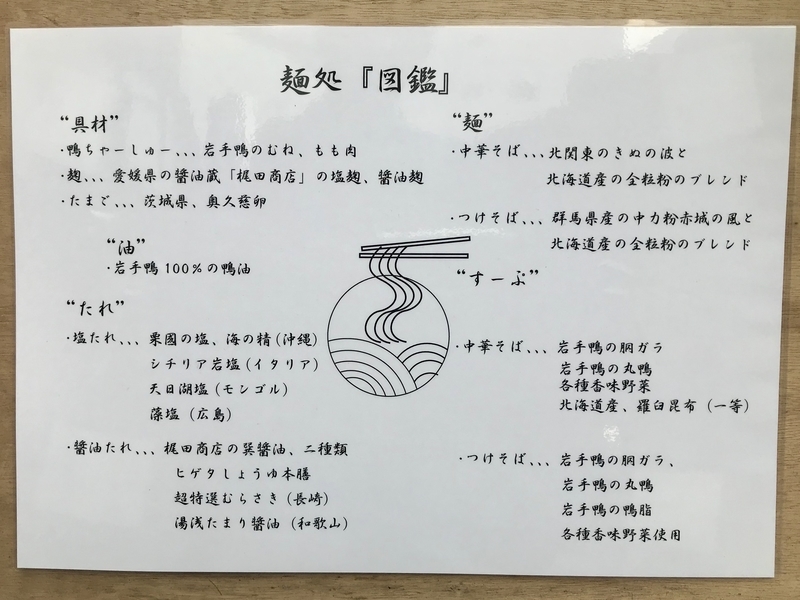 麺処『図鑑』
“具材”
・鴨ちゃーしゅー、、、岩手鴨のむね、もも肉
・麹、、、愛媛県の醤油蔵「梶田商店」の塩麹、醤油麹
・たまご、、、茨城県、奥久慈卵
“油”
・岩手鴨100%の鴨油
“たれ”
・塩たれ、、、粟國の塩、海の精(沖縄)
シチリア岩塩(イタリア)
天日湖塩(モンゴル)
藻塩(広島)
・醬油たれ、、、梶田商店の巽醤油、二種類
ヒゲタしょうゆ本膳
超特選むらさき(長崎)
湯浅たまり醤油(和歌山)
“麺”
・中華そば、、、北関東のきぬの波と
北海道産の全粒粉のブレンド
・つけそば、、、群馬県産の中力粉赤城の風と
北海道産の全粒粉のブレンド
“すーぷ”
・中華そば、、、岩手鴨の胴ガラ
岩手鴨の丸鴨
各種香味野菜
北海道産、羅臼昆布(一等)
・つけそば、、、岩手鴨の胴ガラ、
岩手鴨の丸鴨
岩手鴨の鴨脂
各種香味野菜使用